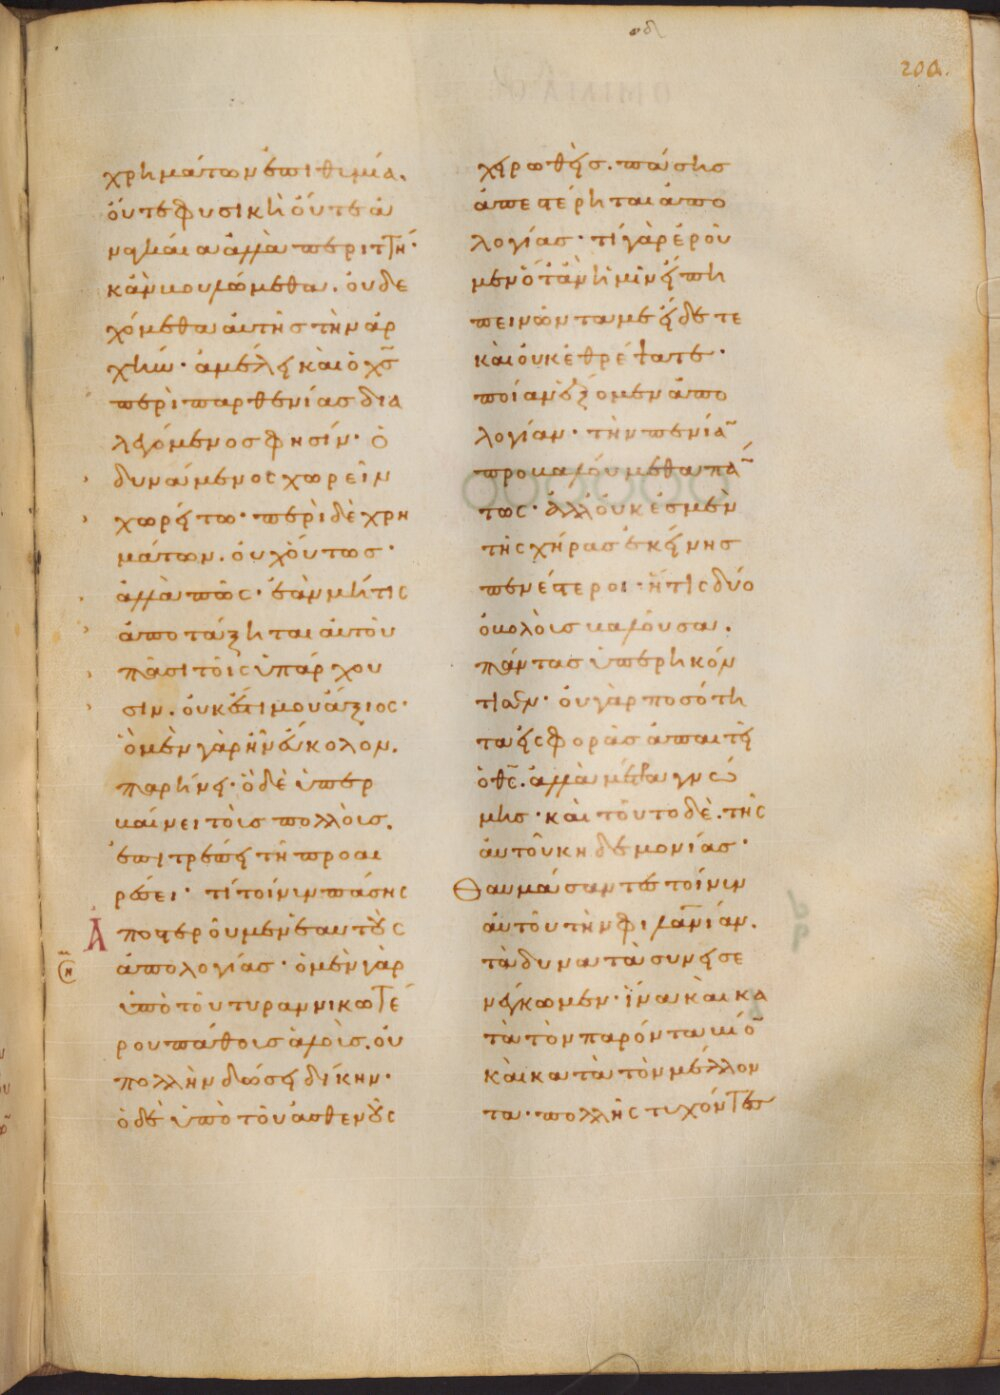 οδ
200.
χρημάτων ἐπιθυμία.
οὔτε φυσικὴ οὔτε ἀ
ναγκαία ἀλλὰ περιττή·
κἂν κουλώμεθα. οὐ δε
χόμεθα αὐτῆς τὴν ἀρ
χήν· ἀμέλει καὶ ὁ χς
περὶ παρθενίας δια
λεγόμενος φησίν· ὁ
δυνάμενος χωρεῖν
χωρείτω· περὶ δὲ χρη
μάτων. οὐχ οὕτως·
ἀλλὰ πῶς· ἐὰν μή τις
ἀποτάξηται αὐτοῦ
πᾶσι τοῖς ὑπάρχου
σιν. οὐκ ἔστι μου ἄξιος·
ὃ μὲν γὰρ ἦν εὔκολον.
παρήνει· ὃ δὲ ὑπερ
βαίνει τοῖς πολλοῖς.
ἐπιτρέπει τῇ προαι
ρέσει· τί τοίνυν πάσης
ἀποστεροῦμεν ἑαυτοὺς
ἀπολογίας· ὁ μὲν γὰρ
ὑπὸ τοῦ τυραννικωτέ
ρου πάθους ἁλοὺς. οὐ
πολλὴν δώσει δίκην·
ὁ δὲ ὑπὸ τοῦ ἀσθενοῦς
χειρωθεὶς. πάσης
ἀπεστέρηται ἀπο
λογίας· τί γὰρ ἐροῦ
μεν ὅταν ἡμῖν εἴπη
πεινῶντα με εἴδετε
καὶ οὐκ ἐθρέψατε·
ποίαν ἕξομεν ἀπο
λογίαν· τὴν πενία̅
προβαλούμεθα πά̅
τως· ἀλλ' οὐκ ἐσμὲν
τῆς χήρας ἐκείνης
πενέστεροι· ἥτις δύο
ὀβολοὺς βαλοῦσα.
πάντας ὑπερηκόν
τισεν· οὐ γὰρ ποσότη
τα εἰσφορᾶς ἀπαιτεῖ
ὁ θς. ἀλλὰ μέτρα γνώ
μης· καὶ τοῦτο δὲ. τῆς
αὐτοῦ κηδεμονίας·
Θαυμάσαντες τοίνυν
αὐτοῦ τὴν φιλανίαν.
τὰ δυνατὰ συνεισε
νέγκωμεν· ἵνα καὶ κα
τὰ τὸν παρόντα βίο̅
καὶ κατὰ τὸν μέλλον
τα· πολλῆς τυχόντες